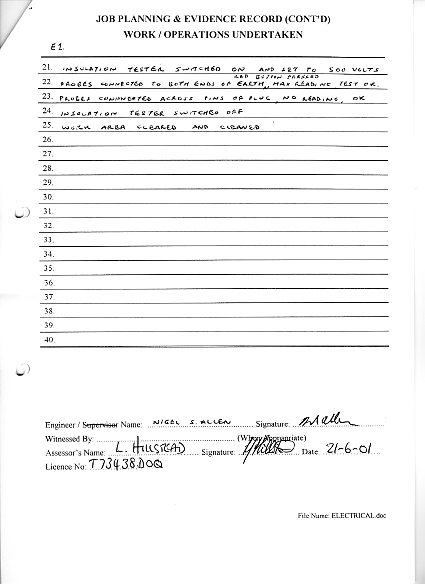 JOB PLANNING & EVIDENCE RECORD (CONT'D)
WORK / OPERATIONS UNDERTAKEN
E1.
21. INSULATION TESTER SWITCHED ON AND SET TO 500 VOLTS
RED BUTTON PRESSED
22. PROBES CONNECTED TO BOTH ENDS OF EARTH, MAX READING TEST OK.
23. PROBES CONNNECTED ACROSS PINS OF PLUG, NO READING, OK
24. INSULATION TESTER SWITCHED OFF
25. WORK AREA CLEARED AND CLEANED
26.
27.
28.
29.
30.
31.
32.
33.
34.
35.
36.
37.
38.
39.
40.
Engineer / Supervisor Name: NIGEL S. ALLEN Signature:
Witnessed By: (Where Appropriate)
Assessor's Name: L. HILLSTEAD Signature: Date 21-6-01
Licence No: T73438DOQ
File Name: ELECTRICAL.doc